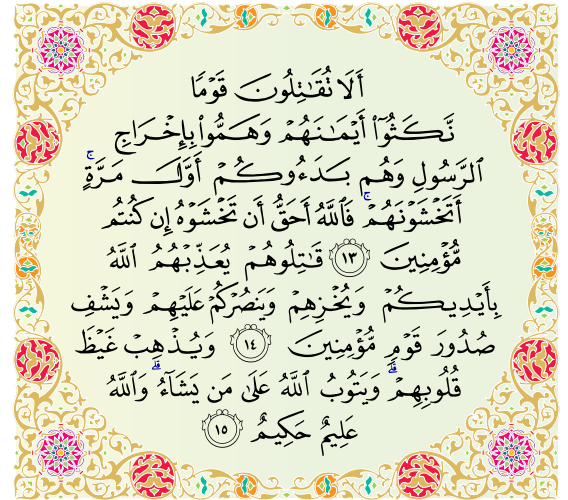 أَلَا تُقَٰتِلُونَ قَوۡمًا
نَّكَثُوٓاْ أَيۡمَٰنَهُمۡ وَهَمُّواْ بِإِخۡرَاجِ
ٱلرَّسُولِ وَهُم بَدَءُوكُمۡ أَوَّلَ مَرَّةٍۚ
أَتَخۡشَوۡنَهُمۡۚ فَٱللَّهُ أَحَقُّ أَن تَخۡشَوۡهُ إِن كُنتُم
مُّؤۡمِنِينَ ١٣ قَٰتِلُوهُمۡ يُعَذِّبۡهُمُ ٱللَّهُ
بِأَيۡدِيكُمۡ وَيُخۡزِهِمۡ وَيَنصُرۡكُمۡ عَلَيۡهِمۡ وَيَشۡفِ
صُدُورَ قَوۡمٖ مُّؤۡمِنِينَ ١٤ وَيُذۡهِبۡ غَيۡظَ
قُلُوبِهِمۡۗ وَيَتُوبُ ٱللَّهُ عَلَىٰ مَن يَشَآءُۗ وَٱللَّهُ
عَلِيمٌ حَكِيمٌ ١٥